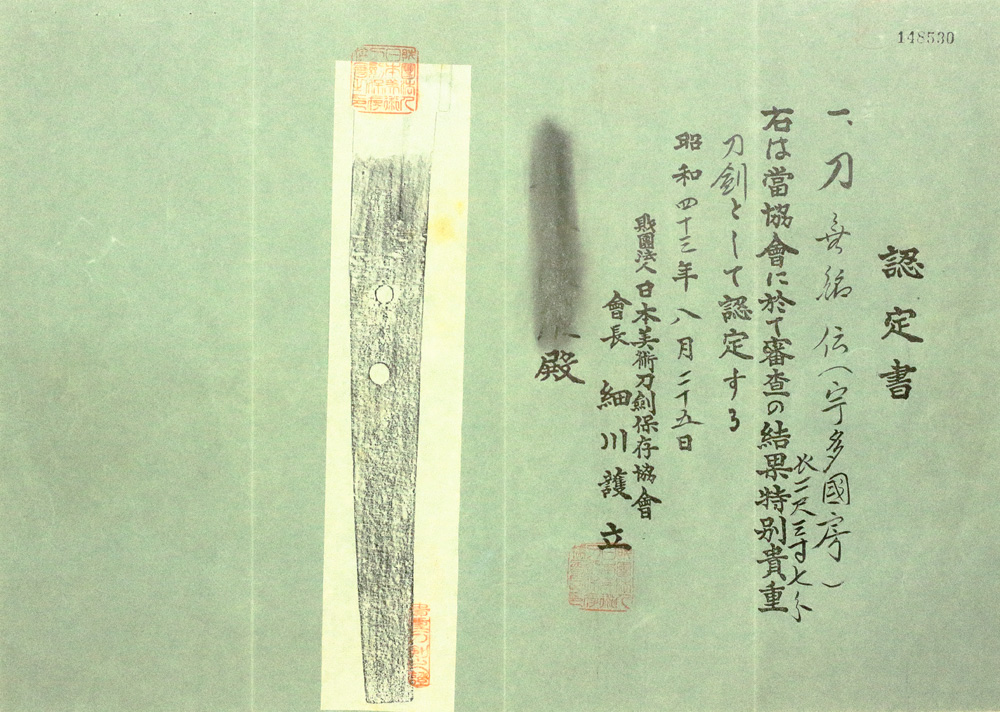 148530
認定書
一、刀 無銘 伝(宇多國房)
長二尺三寸七分
右は當協會に於て審査の結果特別貴重
刀劍として認定する
昭和四十三年八月二十五日
財團法人日本美術刀劍保存協會
會長 細川護立
殿